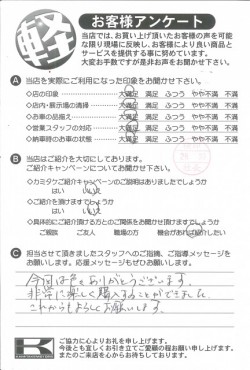 軽
お客様アンケート
当店では、お買い上げ頂いたお客様の声を可能
な限り現場に反映し、お客様により良い商品と
サービスを提供する事に努めています。
大変お手数ですが是非お声をお聞かせ下さい。
A 当店を実際にご利用になった印象をお聞かせ下さい。
◇店の印象 大満足 満足 ふつう やや不満 不満
◇店内・展示場の清掃 大満足 満足 ふつう やや不満 不満
◇お車の品揃え 大満足 満足 ふつう やや不満 不満
◇営業スタッフの対応 大満足 満足 ふつう やや不満 不満
◇納車時のお車の状態 大満足 満足 ふつう やや不満 不満
B 当店はご紹介を大切にしております。
ご紹介キャンペーンについてお聞かせ下さい。
◇カミタケご紹介キャンペーンの説明はありましたでしょうか
はい いいえ
◇ご紹介を頂けますでしょうか
はい いいえ
◇具体的にご紹介頂ける方とのご関係をお聞かせ頂けますでしょうか
ご親族 ご友人 職場の方 機会があれば紹介したい
C 担当させて頂きましたスタッフへのご指摘、ご指導メッセージを
お願いします。応援メッセージもぜひお願いします。
今回は色々ありがとうございます。
非常に楽しく購入することができました。
これからもよろしくお願いします。
K
ご協力に心よりお礼を申し上げます。
今後とも宜しくお引き立てご愛顧の程お願い申し上げます。
またのご来店を心からお待ちしております。